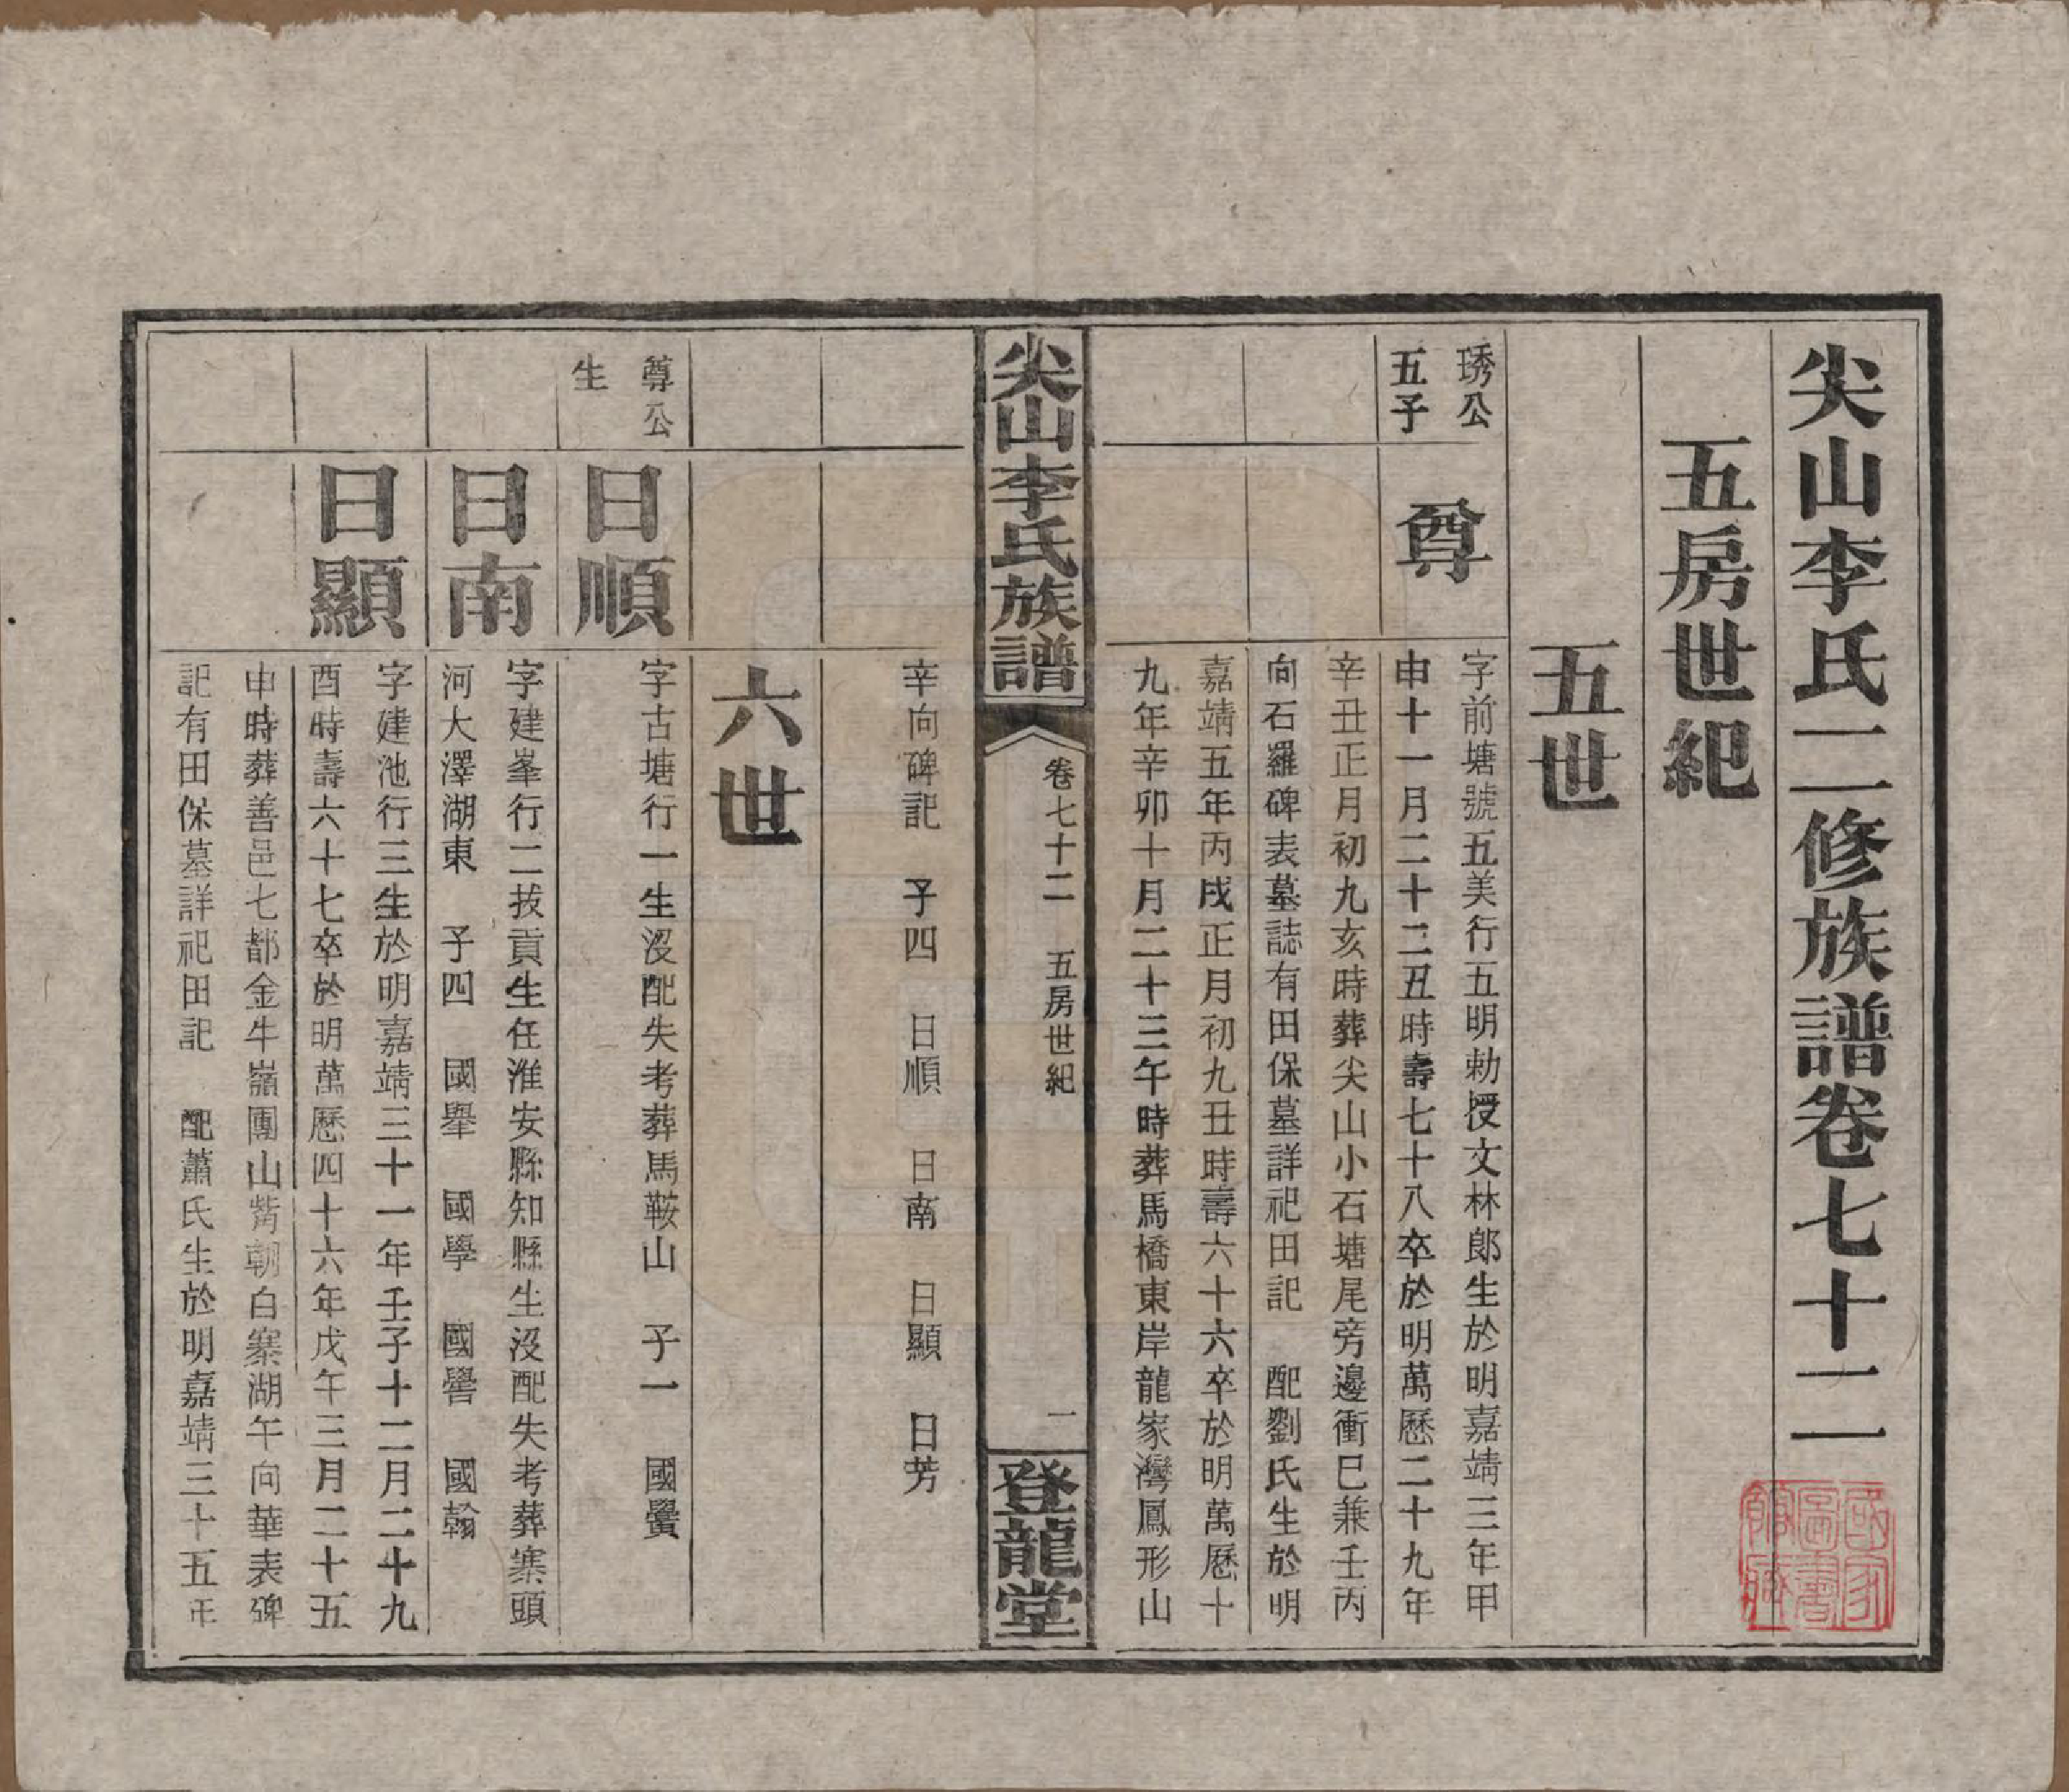 尖山李氏二修族譜卷七十二
五房世紀
五世
琇公
五子
尊
字前塘號五美行五明勅授文林郎生於明嘉靖三年甲
申十一月二十二丑時壽七十八卒於明萬歷二十九年
辛丑正月初九亥時葬尖山小石塘尾旁邊衝巳兼壬丙
向石羅碑表墓誌有田保墓詳祀田記 配劉氏生於明
嘉靖五年丙戌正月初九丑時壽六十六卒於明萬歷十
九年辛卯十月二十三午時葬馬橋東岸龍家灣鳳形山
尖山李氏族譜
卷七十二 五房世紀
一
登龍堂
辛向碑記 子四 日順 日南 日顯 日芳
六世
尊公
生
日順
字古塘行一生沒配失考葬馬鞍山 子一 國黌
日南
字建峯行二拔貢生任淮安縣知縣生沒配失考葬寨頭
河大澤湖東 子四 國舉 國學 國譽 國翰
日顯
字建池行三生於明嘉靖三十一年壬子十二月二十九
酉時壽六十七卒於明萬歷四十六年戊午三月二十五
申時葬善邑七都金牛嶺團山嘴朝白寨湖午向華表碑
記有田保墓詳祀田記 配蕭氏生於明嘉靖三十五年
國家
圖書
館藏